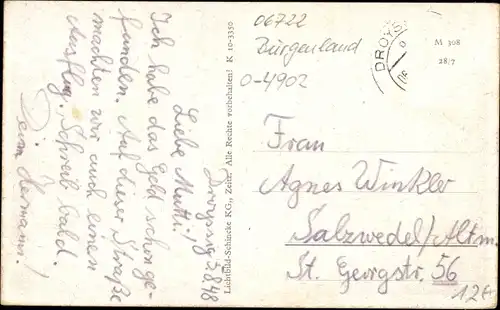 Droyssig 3.8.48
Liebe Mutti!
Ich habe das Geld schon ge-
funden. Auf dieser Straße
machten wir auch einen
Ausflug. Schreib bald.
Dein Hermann!
Lichtbild-Schincke KG., Zeitz. Alle Rechte vorbehalten! K 10-3350
06722
Burgenland
0-4902
DROYS
M 308
28/7
Frau
Agnes Winkler
Salzwedel/Altm.
St. Georgstr. 56
12€